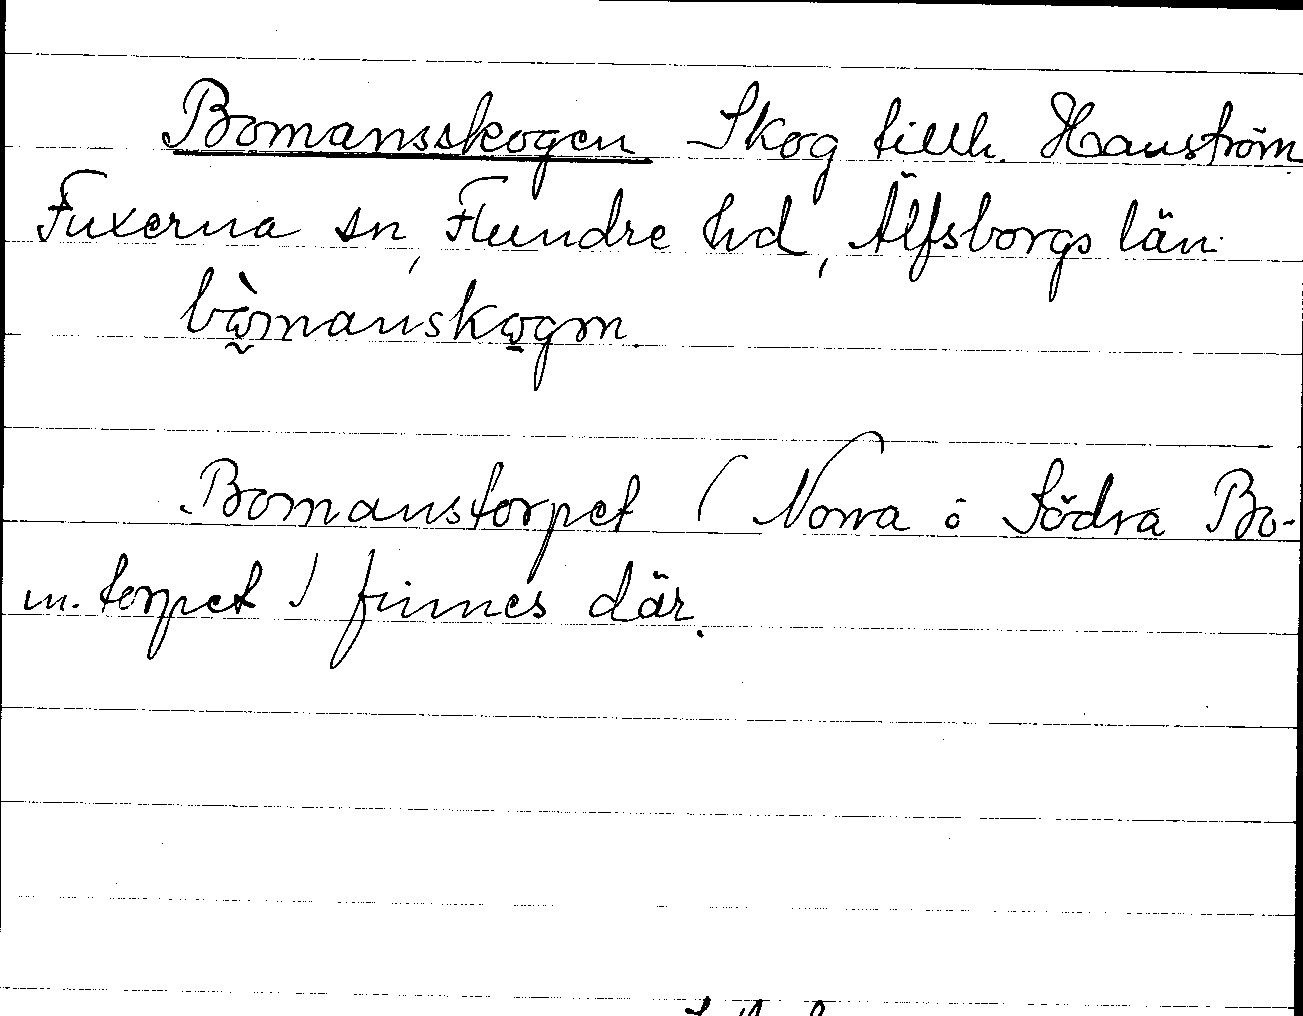 Bomansskogen Skog tillh. Hanström
Fuxerna sn, Flundre hd, Älfsborgs län.
bò̰mansko̱gm.
Bomanstorpet (Norra o Södra Bo-
m. torpet) finnes där.